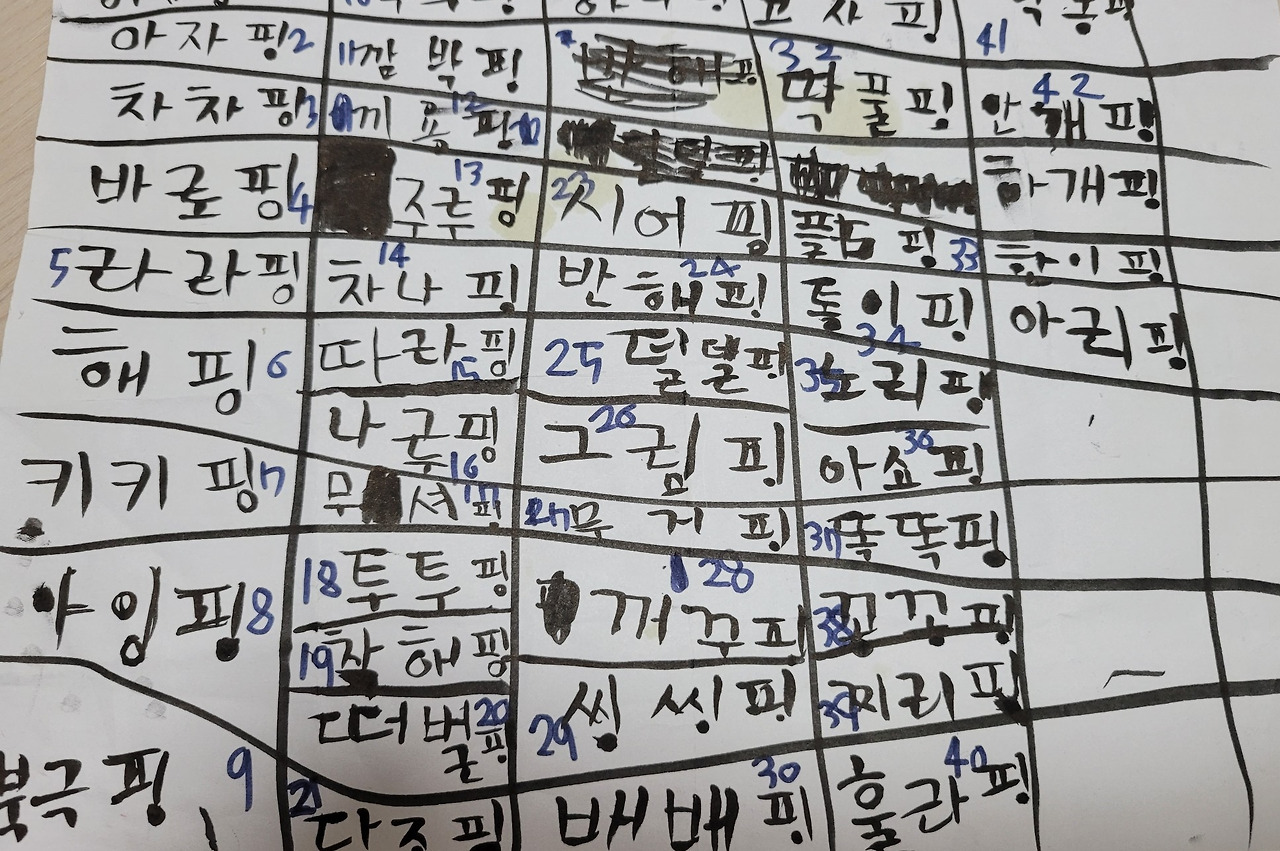 아자핑 2
차차핑 3
바로핑 4
5 라라핑
해핑 6
키키핑 7
야잉핑 8
북극핑 9
11 깜빡핑
끼용핑 12
13 주루핑
14 차나핑
따라핑 15
나근핑 16
무셔핑 17
18 투투핑
19 착해핑
떠벌핑 20
21 다조핑
23 시어핑
반해핑 24
25 덜덜핑
그림핑 26
27 무거핑
28 까꾸핑
29 씽씽핑
30 배배핑
고사핑
32 떡꿀핑
플로핑 33
돌이핑 34
35 노리핑
아쇼핑 36
37 똑똑핑
38 꼬꼬핑
39 찌리핑
훌라핑 40
41
42 안깨핑
하개핑
하이핑
아리핑